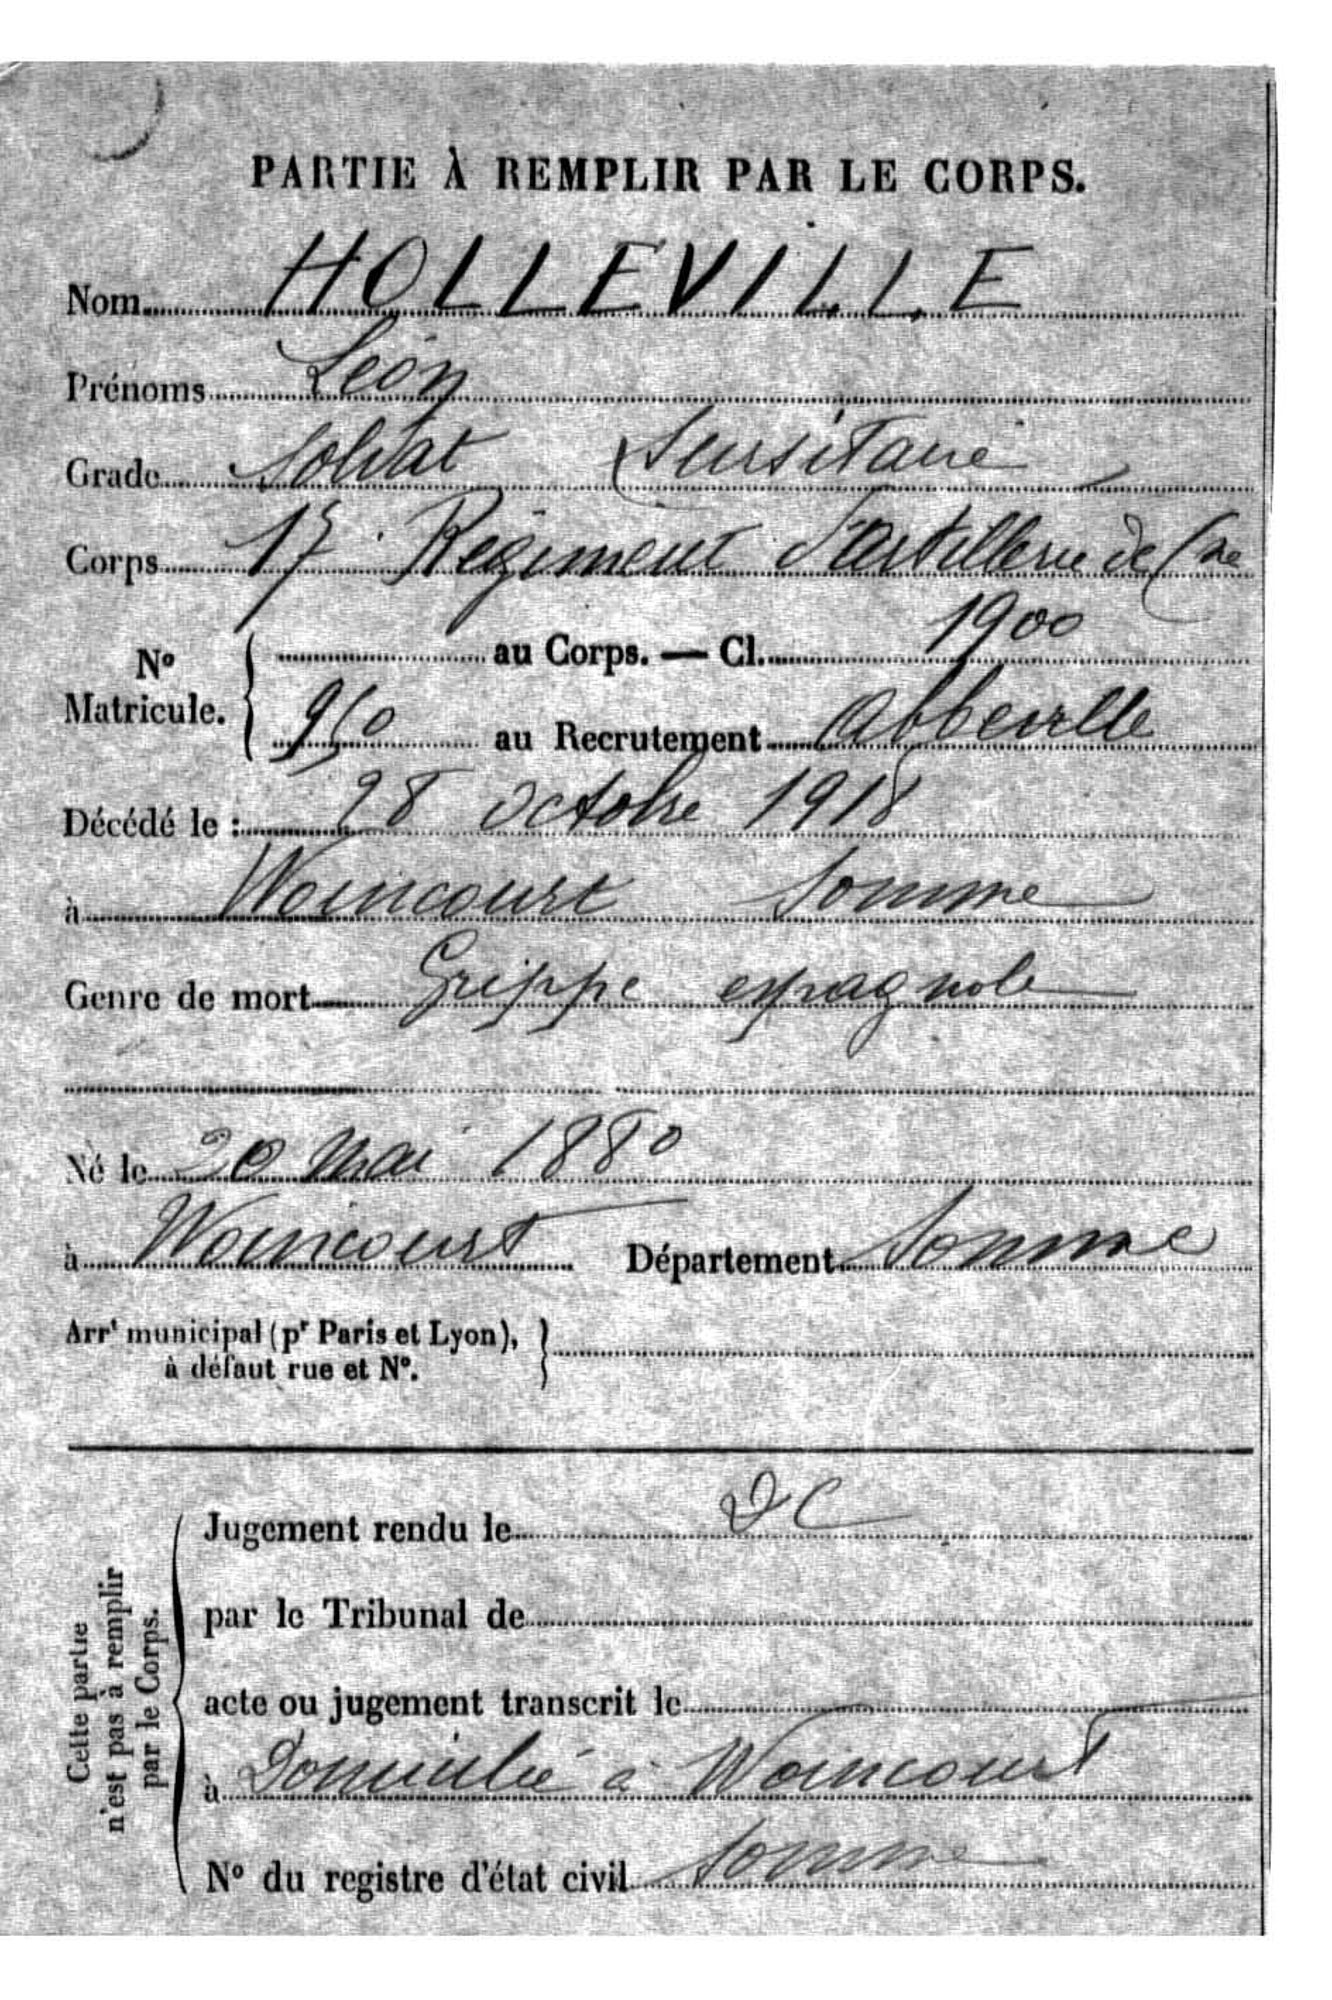 PARTIE À REMPLIR PAR LE CORPS.
Nom HOLLEVILLE
Prénoms Léon
Grade Soldat (Sursitaire
Corps 17 Régiment d'Artillerie de Cne
N° Matricule. { au Corps. — Cl. 1900
950 au Recrutement Abbeville
Décédé le : 28 octobre 1918
à Woincourt Somme
Genre de mort Grippe espagnole
Né le 20 Mai 1880
à Woincourt Département Somme
Arrt municipal (pr Paris et Lyon), }
à défaut rue et N°.
Cette partie
n'est pas à remplir
par le Corps.
Jugement rendu le DC
par le Tribunal de
acte ou jugement transcrit le
à Domicilié à Woincourt
N° du registre d'état civil Somme